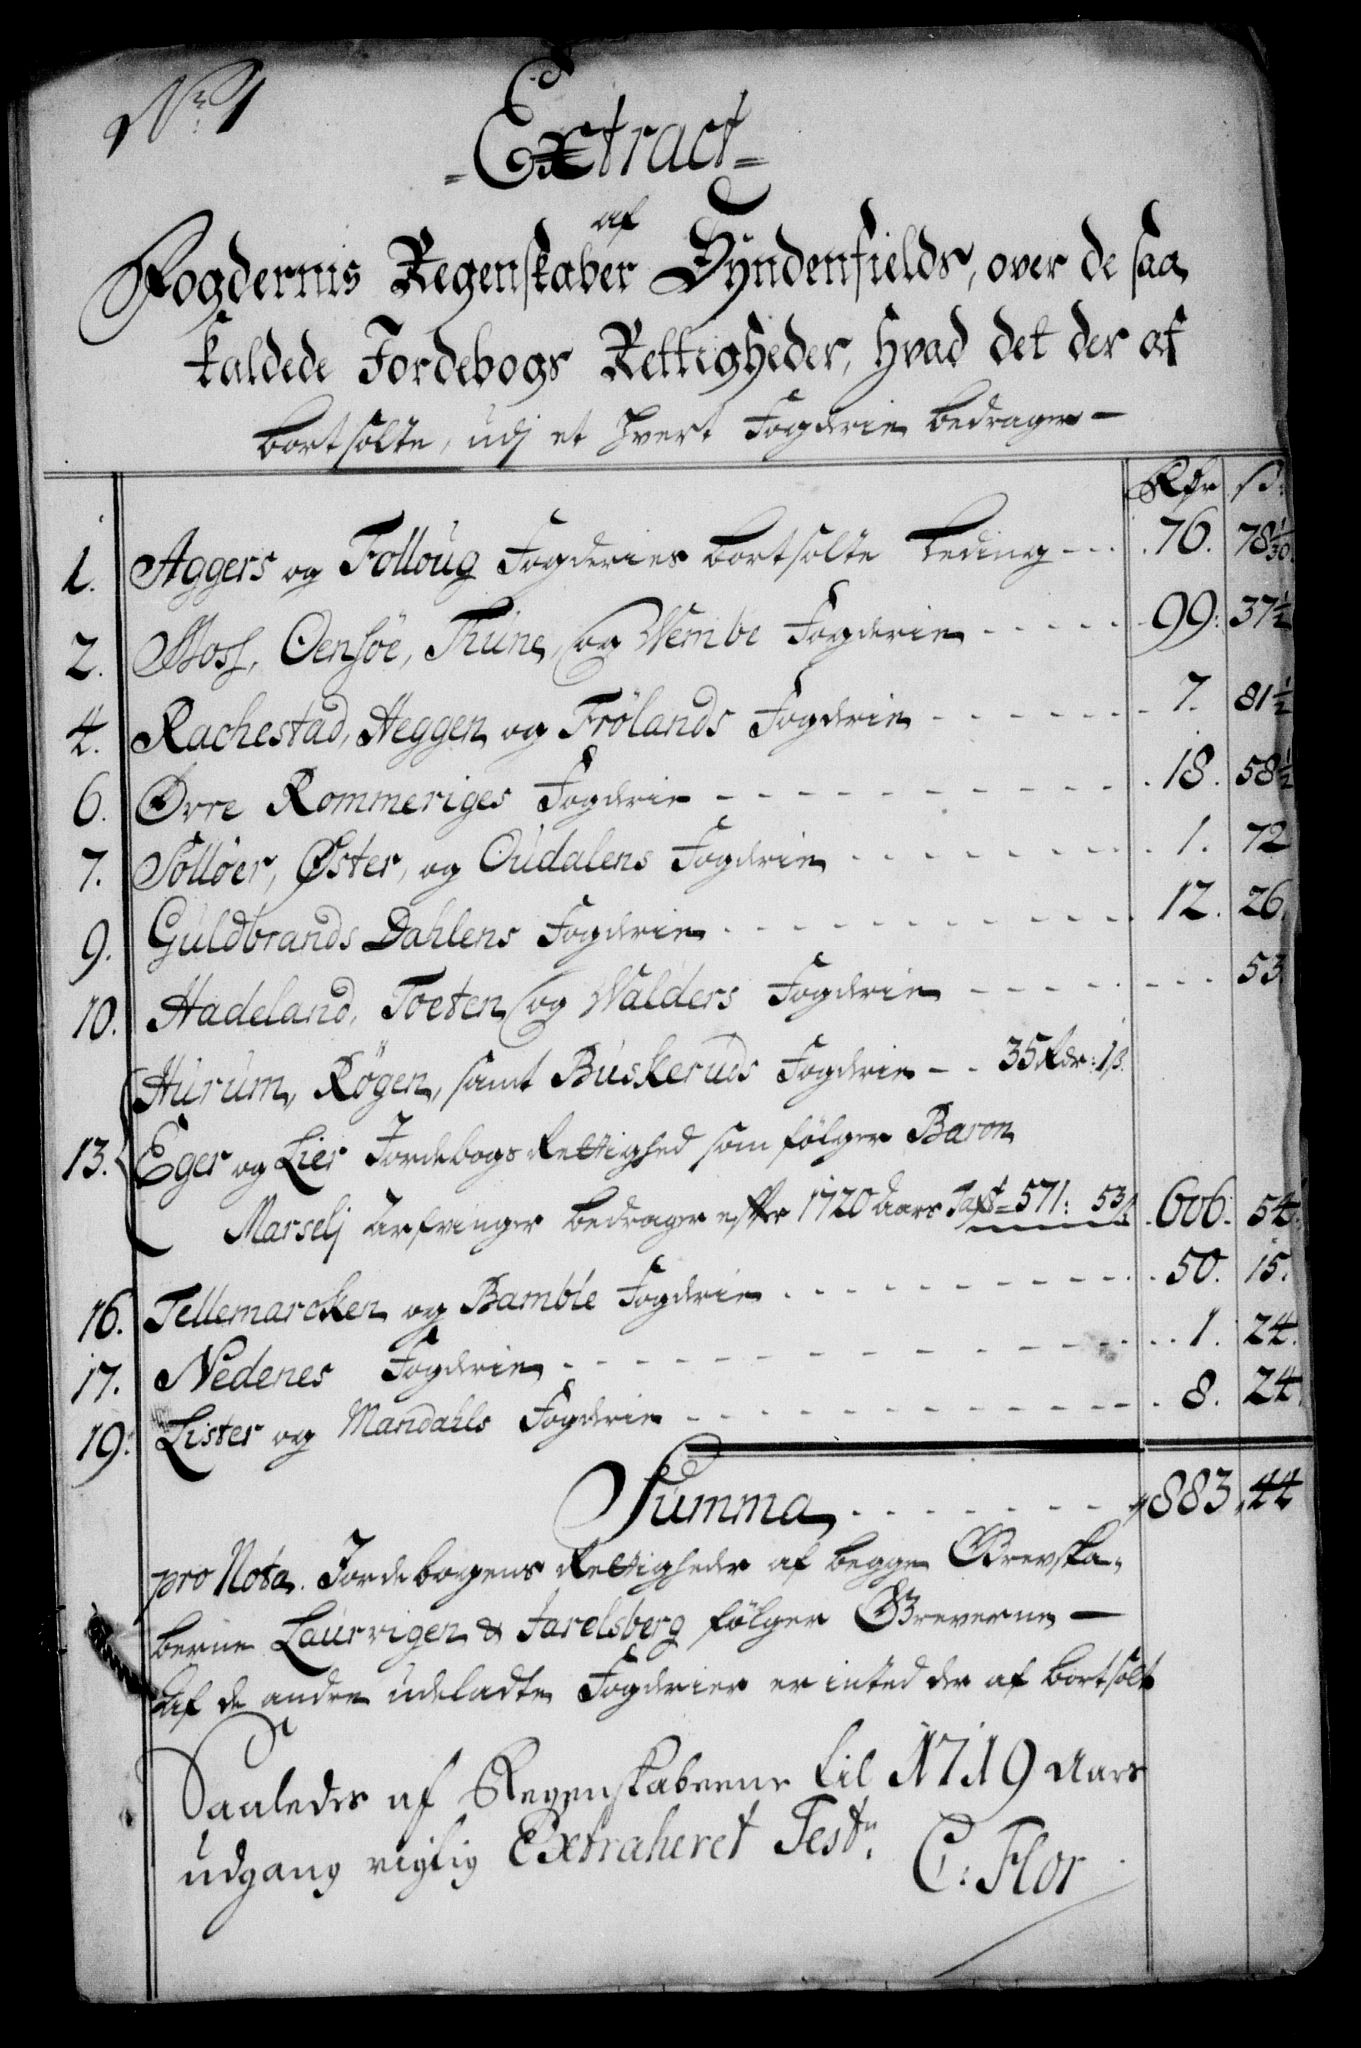 No: 1
Extract
af
Fogdernis Regenskaber Syndenfields, over de saa
kaldede Jordebogs Rettigheder, hvad det der af
bortsolte, udj et hvert Fogderie bedrager
Rdr ß:
1. Aggers og Folloug Fogderies bortsolte Leding 76. 78 1/30
2. Moss, Oensøe, Thune, og Wembe Fogderie 99: 37 1/2
4. Rachestad, Heggen og Frølands Fogderie 7. 81 1/2
6. Øvre Rommeriges Fogderie 18. 58 1/2
7. Solløer, Øster, og Oudalens Fogderie 1. 72
9. Guldbrands Dahlens Fogderie 12. 26
10. Hadeland, Toeten og Walders Fogderie 53
Hurum, Røgen, samt Buskeruds Fogderie 35 Rdr: 1ß.
13. Eger og Lier Jordebogs Rettighed som følger Baron
Marselj Arfvinger bedrager efter 1720 Aars Taxt 571: 53ß 606. 54
16. Tellemarcken og Bamble Fogderie 50. 15.
17. Nedenes Fogderie 1. 24.
19. Lister og Mandahls Fogderie 8. 24
Summa 883, 44
pro Nota. Jordebogens Rettigheder af begge Grevska-
berne Laurvigen & Jarelsberg følger Greverne
Af de andre udeladte Fogderier er inted der af bortsolt
Saaledes af Regenskaberne til 1719 Aars
udgang rigtig Extraheret Test:
C: Flor